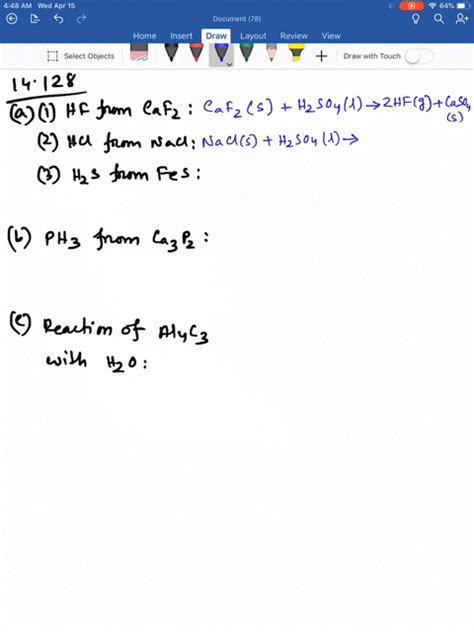 4:48 AM Wed Apr 15 64%
Document (78)
Home Insert Draw Layout Review View
Select Objects Draw with Touch
14.128
(a) (1) HF from CaF2 : CaF2(s) + H2SO4(l) → 2HF(g) + CaSO4
(s)
(2) HCl from NaCl: NaCl(s) + H2SO4(l) →
(3) H2S from FeS :
(b) PH3 from Ca3P2 :
(c) Reaction of Al4C3
with H2O :